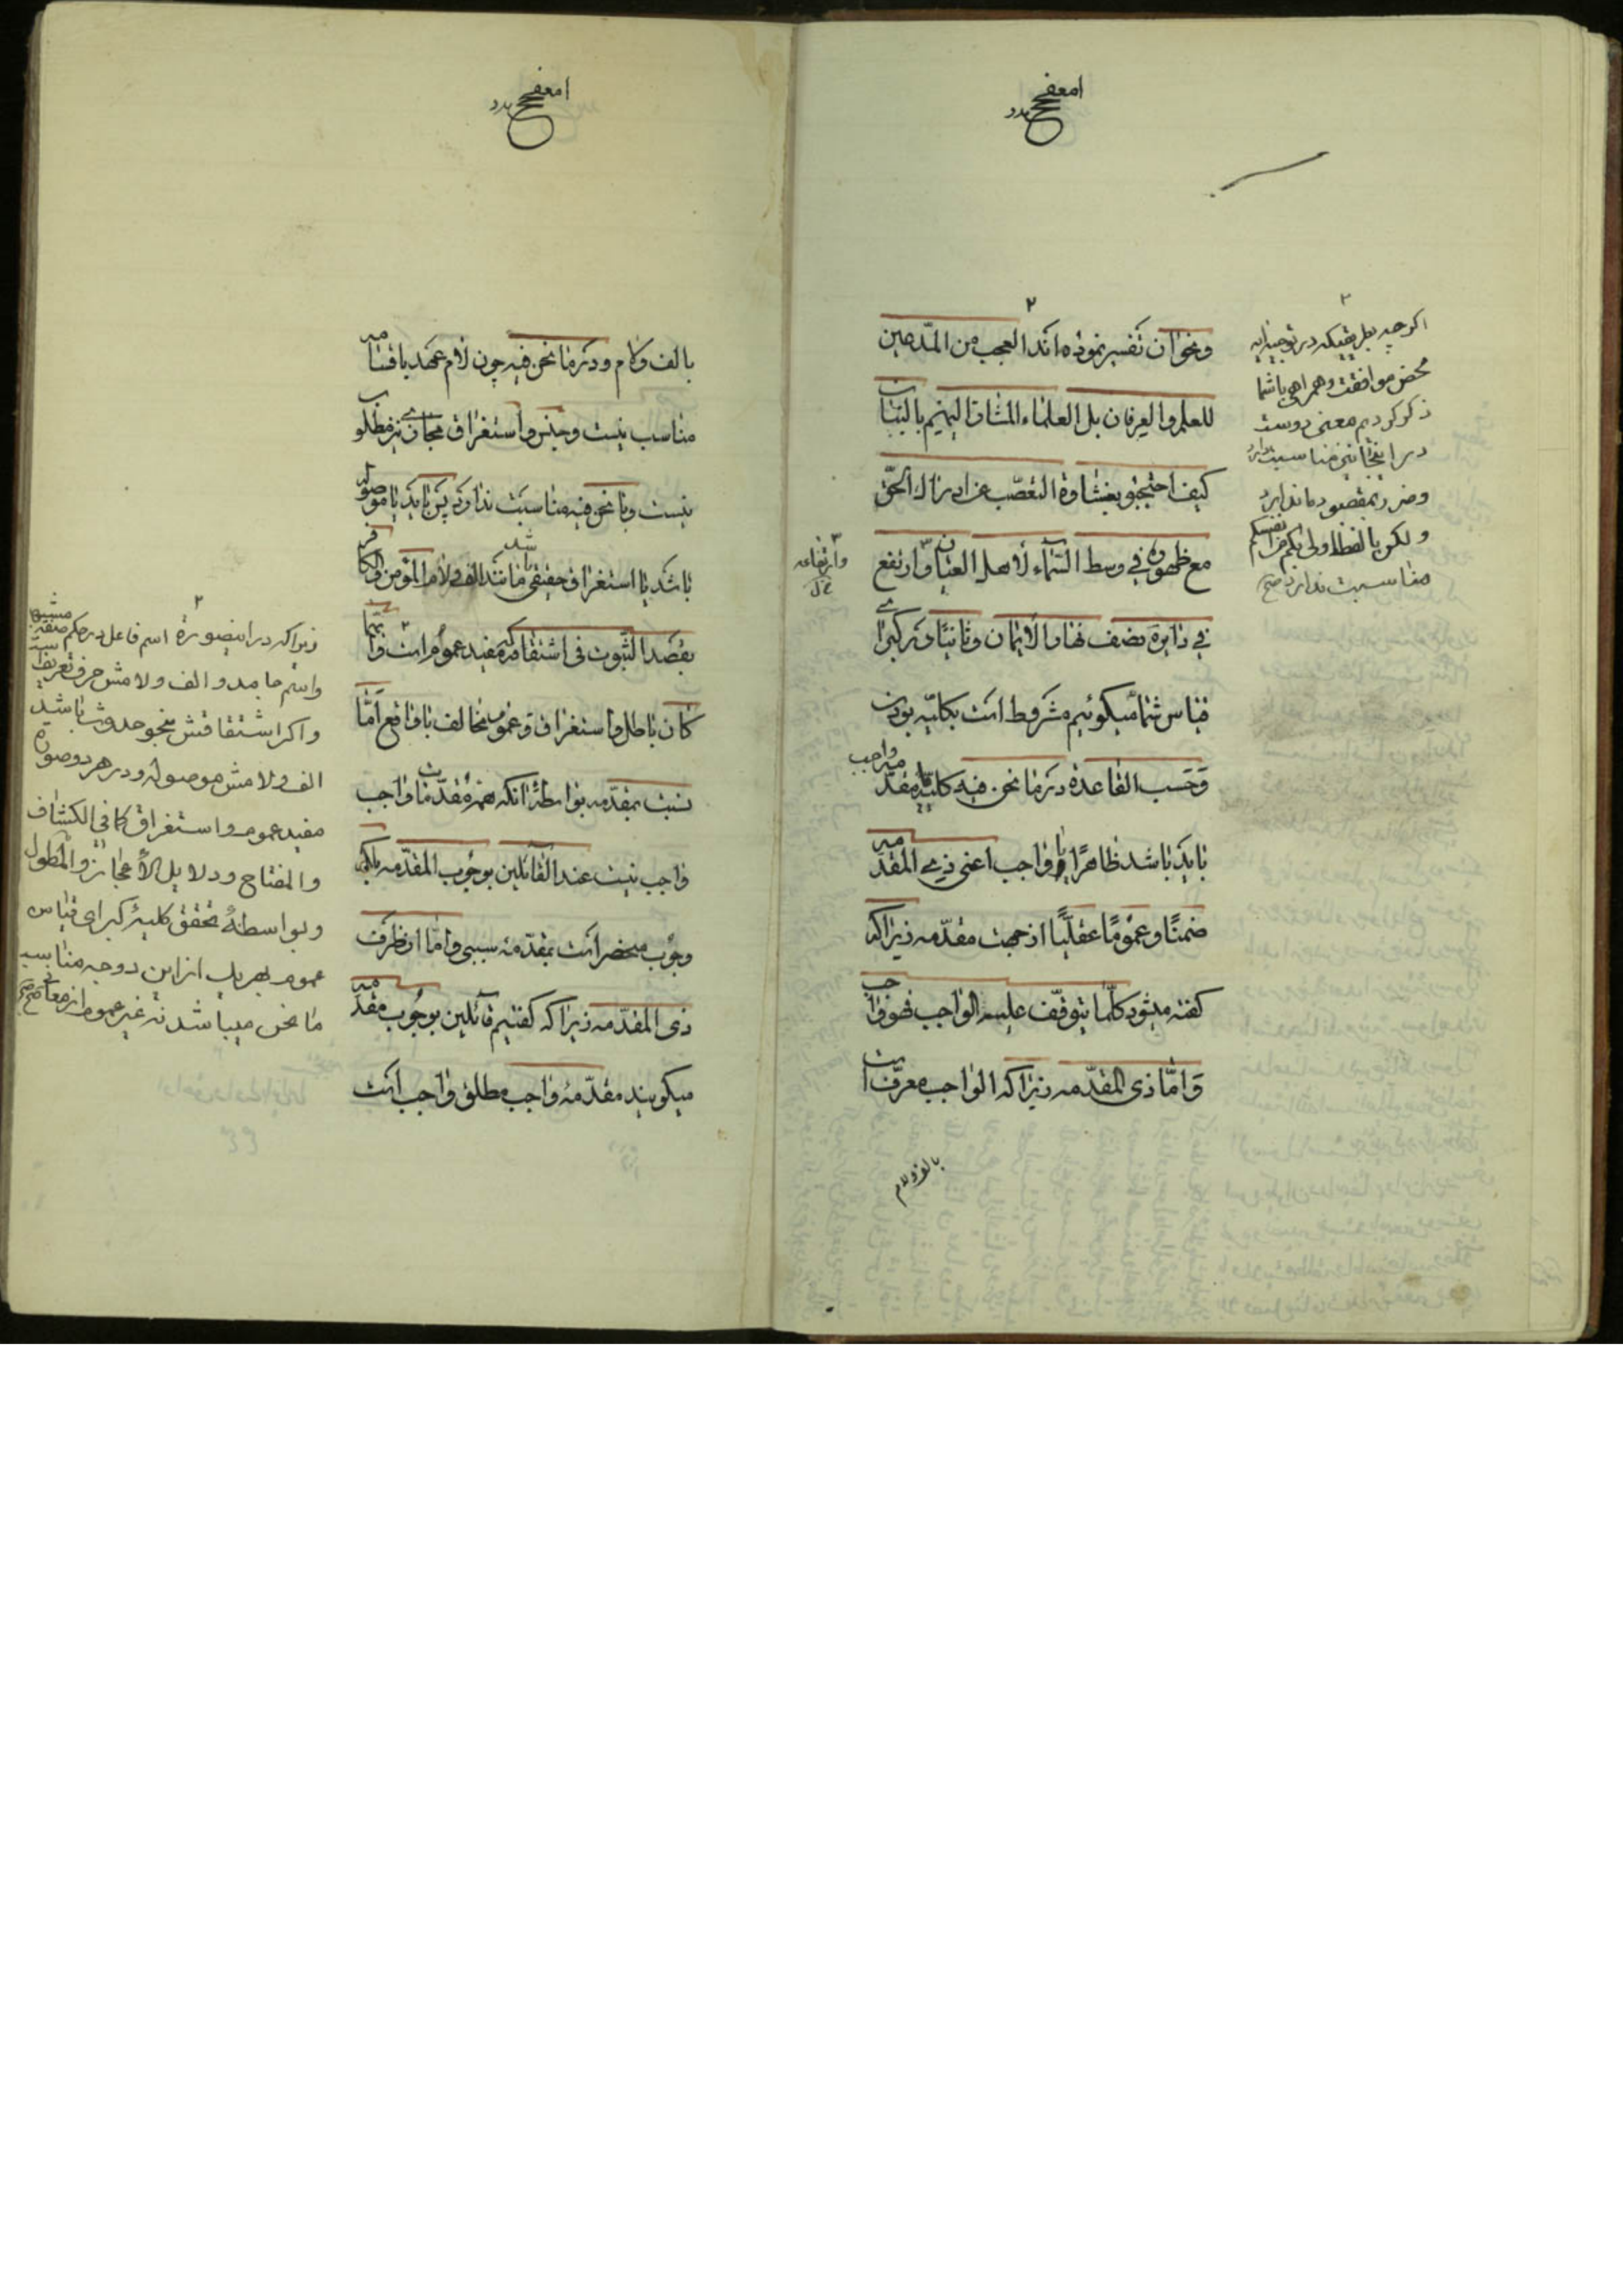 ونحوان تفسیر نموده اند العجب من المدّعین
للعلم والعرفان بل العلماء المشار الیهم بالبنان
کیف احتجبو بغشاوة التعصّب عن ادراك الحقّ
مع ظهوره فی وسط السّماء لأهل العیان وارتفع
فی دایرة نصف نهار الایمان وثانیًا در کبرای
قیاس شما میگوئیم مشروط است بکلیّه بودن
وحسب القاعده در ما نحن فیه کلیّة مقدّمه واجب
باید باشد ظاهرًا یا واجب اعنی ذی المقدّمه
ضمنًا وعمومًا عقلیًّا از جهت مقدّمه زیرا که
گفته میشود کلّما یتوقّف علیه الواجب فهو واجب
وامّا ذی المقدّمه زیرا که الواجب معرّف است
بالف ولام
اگر چه بطریقیکه در توجیه
محض موافقت وهمراهی باشما
ذکر کردیم معنی دوست
در اینجا نیز مناسبت دارد
وضرر بمقصود ما ندارد
ولکن بالفظ اولی بکم من انفسکم
مناسبت ندارد صح
وارتفاعه
بالف ولام ودر ما نحن فیه چون لام عهد یا قسامه
مناسب نیست وجنس واستغراق مجازی نیز مطلوب
نیست وبا نحن فیه مناسبت ندارد پس باید یا موصوله
باشد یا استغراق حقیقی مانند الف ولام المؤمن والکافر
بقصد الثبوت فی اشتقاقه که مفید عموم است وایّما
کان باطل واستغراق وعموم مخالف با واقع امّا
نسبت بمقدّمه بواسطهٔ انکه همهٔ مقدّمات واجب
واجب نیست عند القائلین بوجوب المقدّمه بلکه
وجوب منحصر است بمقدّمهٔ سببی وامّا از طرف
ذی المقدّمه زیرا که گفتیم قائلین بوجوب مقدّمه
میگویند مقدّمهٔ واجب مطلق واجب است
زیرا که در اینصورة اسم فاعل در حکم صفة مشبهه
واسم جامد و الف ولامش حرف تعریف است
واگر اشتقاقش بنحو حدوث باشد
الف ولامش موصوله ودر هر دو صورة
مفید عموم واستغراق کما فی الکشاف
والمفتاح ودلایل الأعجاز والمطول
وبواسطهٔ تحقق کلیهٔ کبرای قیاس
عموم بهر یک از این دو وجه مناسب
ما نحن میباشد نه غیر عموم از معانی صح